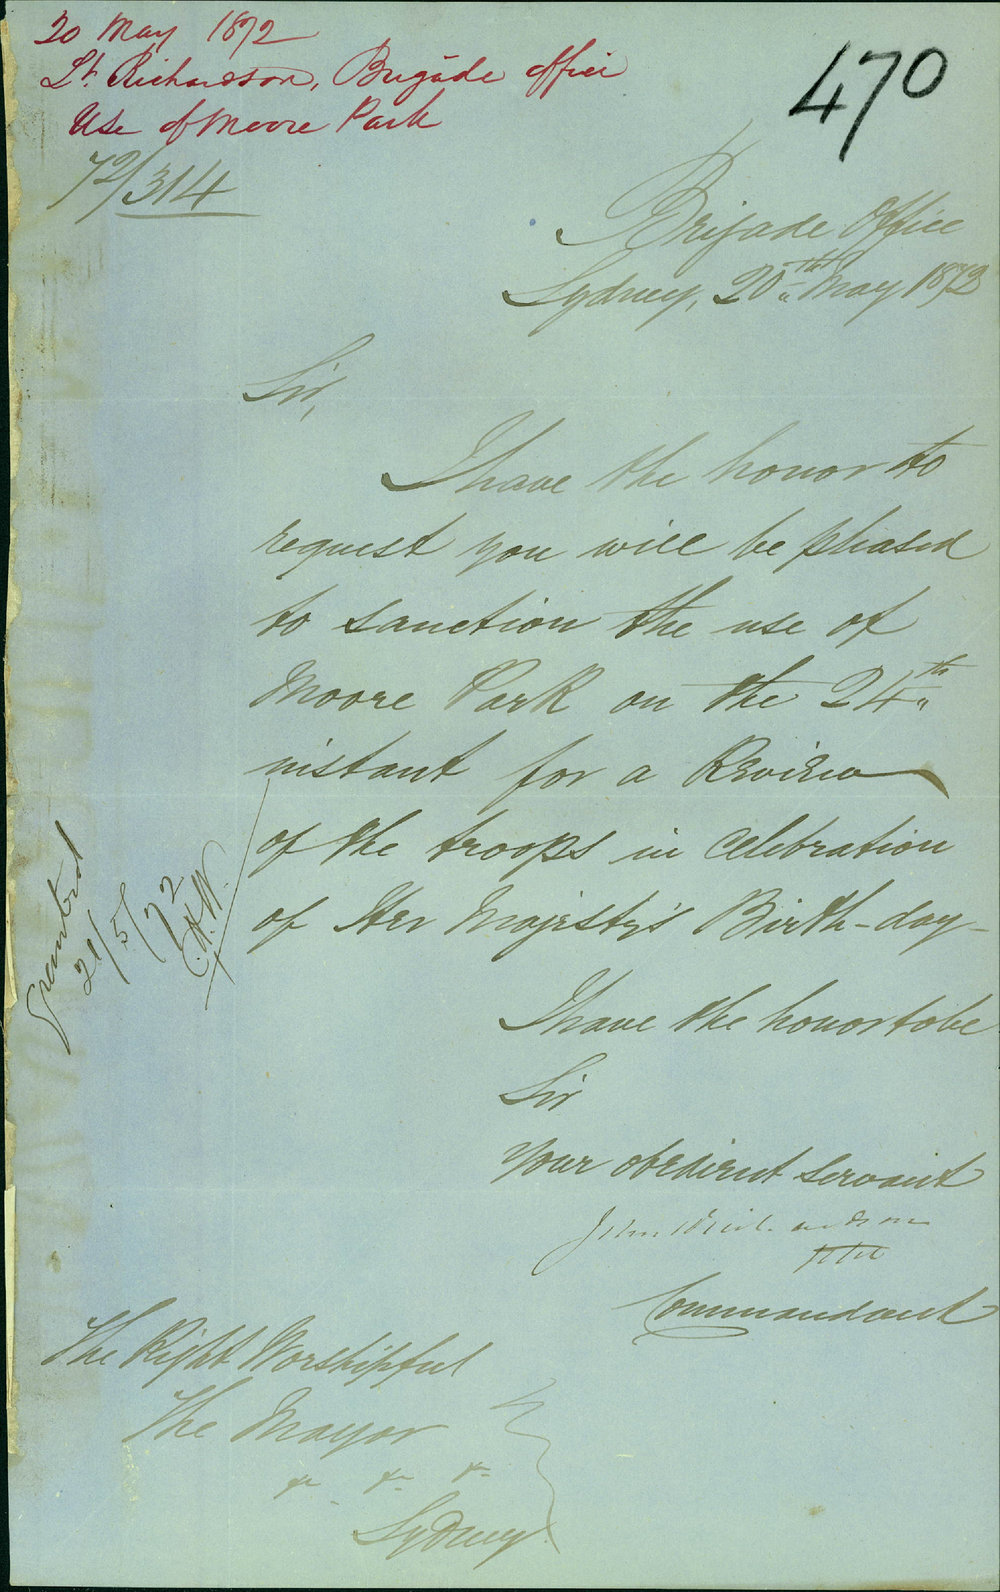 20 May 1872
Lt. Richardson, Brigade Office
Use of Moore Park
72/314
470
Brigade Office
Sydney, 20th May 1872
Sir,
I have the honor to
request you will be pleased
to sanction the use of
Moore Park on the 24th
instant for a Review
of the troops in celebration
of Her Majesty's Birth-day -
I have the honor to be
Sir
Your obedient servant
John Richardson
Commandant
The Right Worshipful
The Mayor
&c. &c. &c.
Sydney.
Granted
21/5/72
C.H.W.